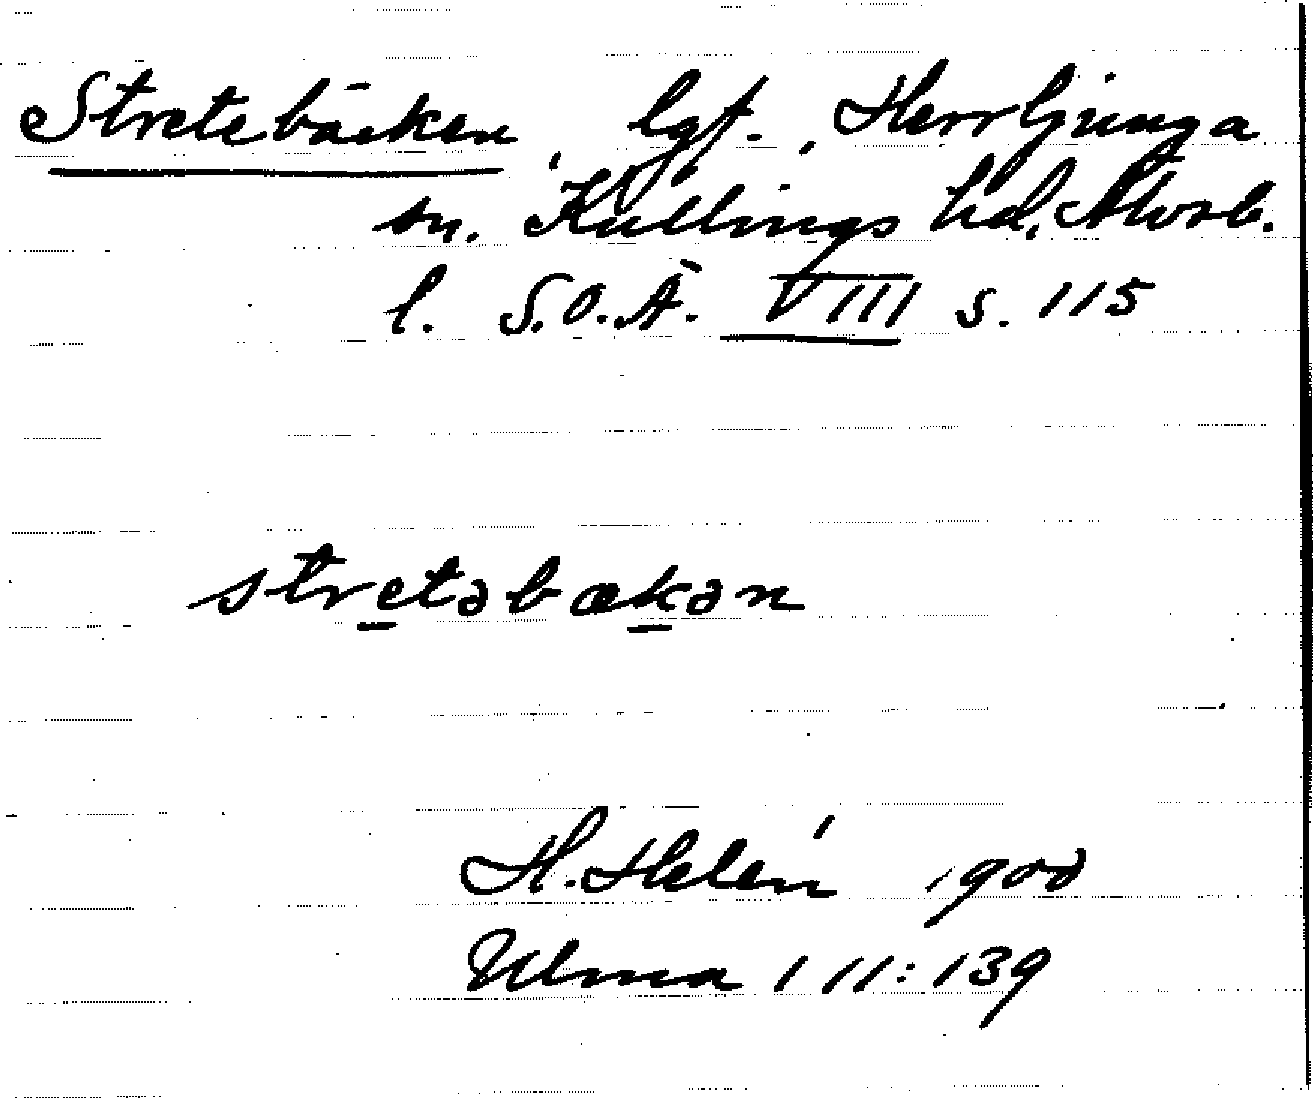 Stretebäcken, lgf., Herrljunga
sn. Kullings hd, Älvsb.
l. S.O.Ä. VIII s. 115
stretəbækən
H. Helén 1900
Ulma 111:139